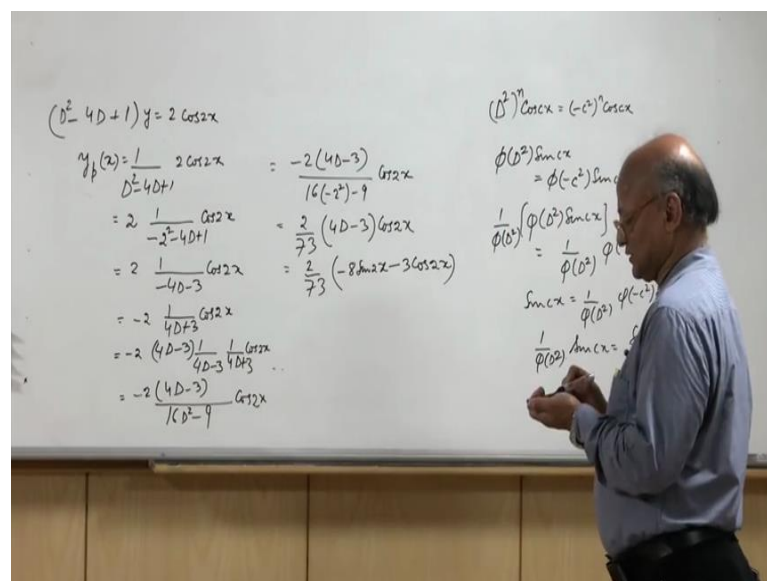 (D² - 4D + 1) y = 2 Cos2x
y_p(x) = 1/(D² - 4D + 1) 2 Cos2x
= 2 1/(-2² - 4D + 1) Cos2x
= 2 1/(-4D - 3) Cos2x
= -2 1/(4D + 3) Cos2x
= -2 (4D - 3) 1/(4D - 3) 1/(4D + 3) Cos2x
= -2 (4D - 3)/(16D² - 9) Cos2x
= -2 (4D - 3)/(16(-2²) - 9) Cos2x
= 2/73 (4D - 3) Cos2x
= 2/73 (-8 Sin2x - 3 Cos2x)
(D²)ⁿ Coscx = (-c²)ⁿ Coscx
φ(D²) Sincx
= φ(-c²) Sinc
1/φ(D²) [φ(D²) Sincx]
= 1/φ(D²) φ(
Sincx = 1/φ(D²) φ(-c²)
1/φ(D²) Sincx =